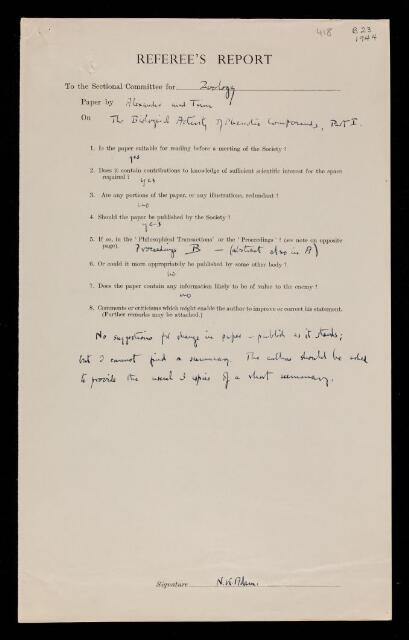 418
B 23
1944
REFEREE'S REPORT
To the Sectional Committee for Zoology
Paper by Alexander and Trim
On The Biological Activity of Phenolic Compounds, Part I.
1. Is the paper suitable for reading before a meeting of the Society ?
yes
2. Does it contain contributions to knowledge of sufficient scientific interest for the space
required ? yes
3. Are any portions of the paper, or any illustrations, redundant ?
no
4. Should the paper be published by the Society ?
yes
5. If so, in the ' Philosophical Transactions' or the ' Proceedings' ? (see note on opposite
page). Proceedings B — (abstract also in A)
6. Or could it more appropriately be published by some other body ?
no
7. Does the paper contain any information likely to be of value to the enemy ?
no
8. Comments or criticisms which might enable the author to improve or correct his statement.
(Further remarks may be attached.)
No suggestions for change in paper - publish as it stands;
but I cannot find a summary. The authors should be asked
to provide the usual 3 copies of a short summary.
Signature N.K. Adam.